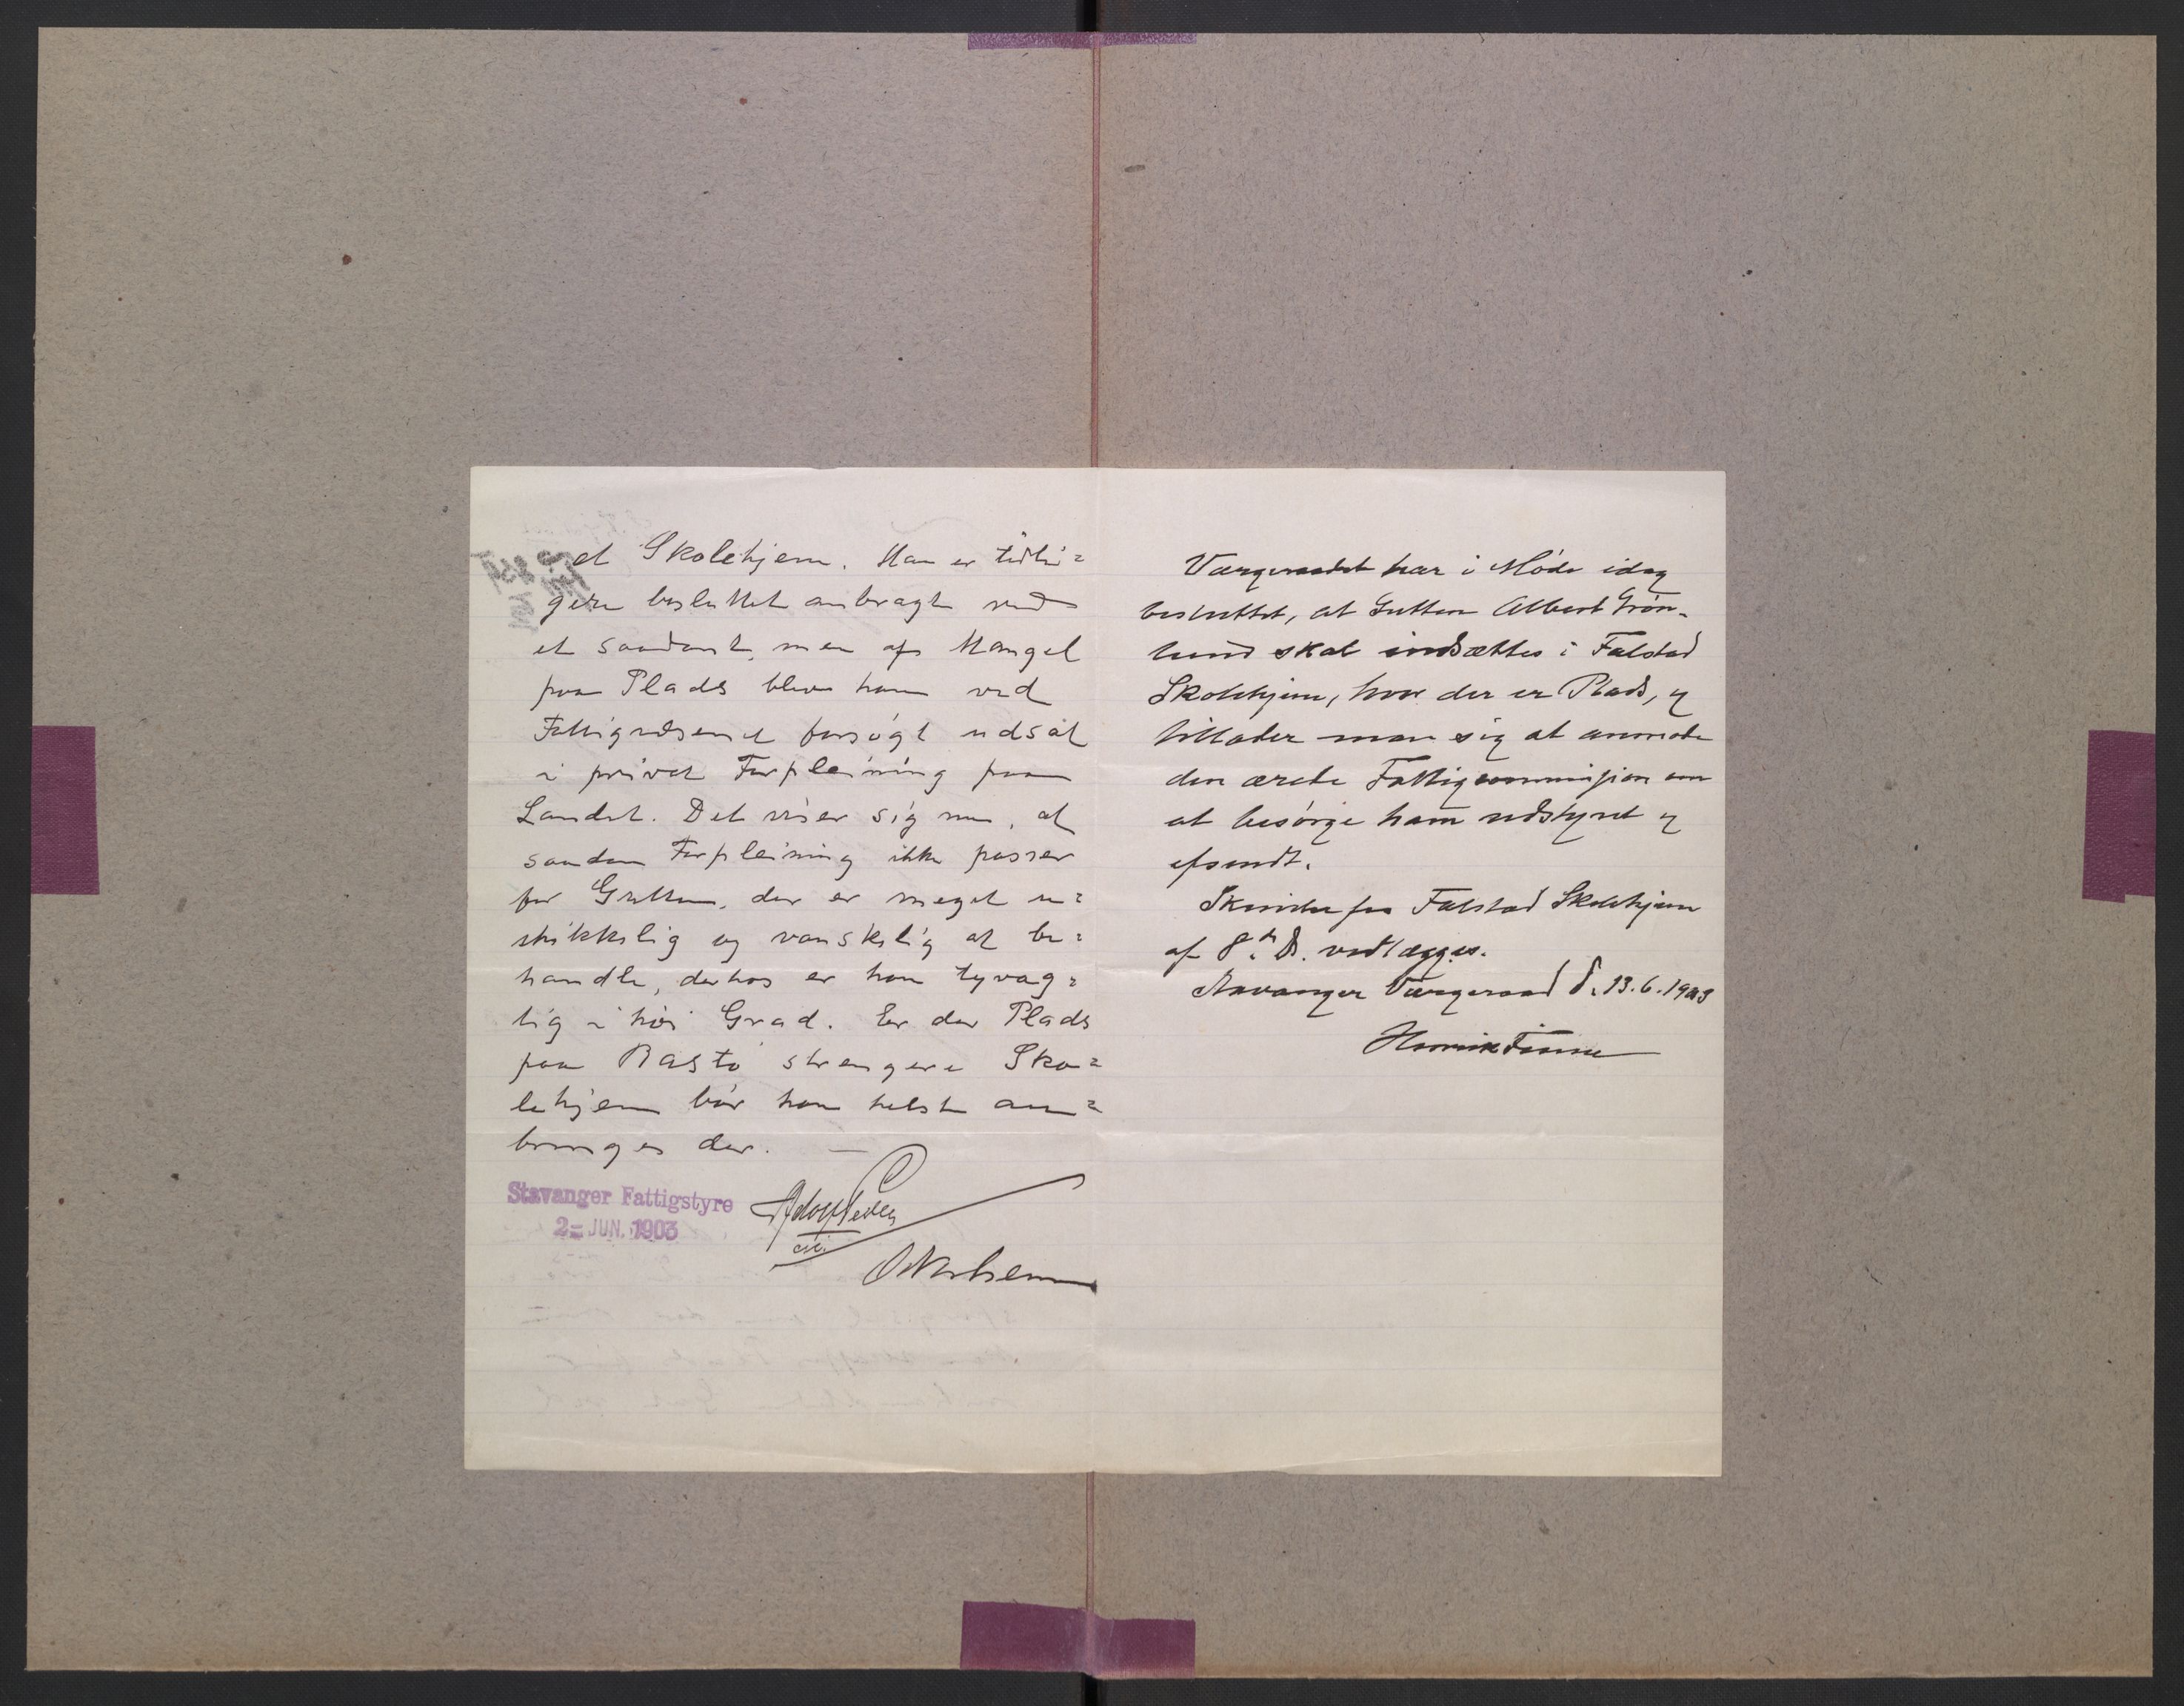 et Skolehjem. Han er tidli=
gere besluttet anbragt ved
et saadant, men af Mangel
paa Plads blev han ved
Fattigvæsenet forsøgt udsat
i privat Forpleining paa
Landet. Det viser sig nu, at
saadan Forpleining ikke passer
for Gutten, der er meget u=
skikkelig og vanskelig at be=
handle, derhos er han tyvag=
tig i høi Grad. Er der Plads
paa Bastø strengere Sko=
lehjem bør han helst an=
bringes der. —
Stavanger Fattigstyre
2- JUN. 1903
Værgeraadet har i Møde idag
besluttet, at Gutten Albert Grøn-
lund skal indsættes i Falstad
Skolehjem, hvor der er Plads, og
tillader man sig at anmode
den ærede Fattigcommission om
at besørge ham udstyret og
afsendt.
Skrivelse fra Falstad Skolehjem
af 8 ds. vedlægges.
Stavanger Værgeraad d. 13.6.1903